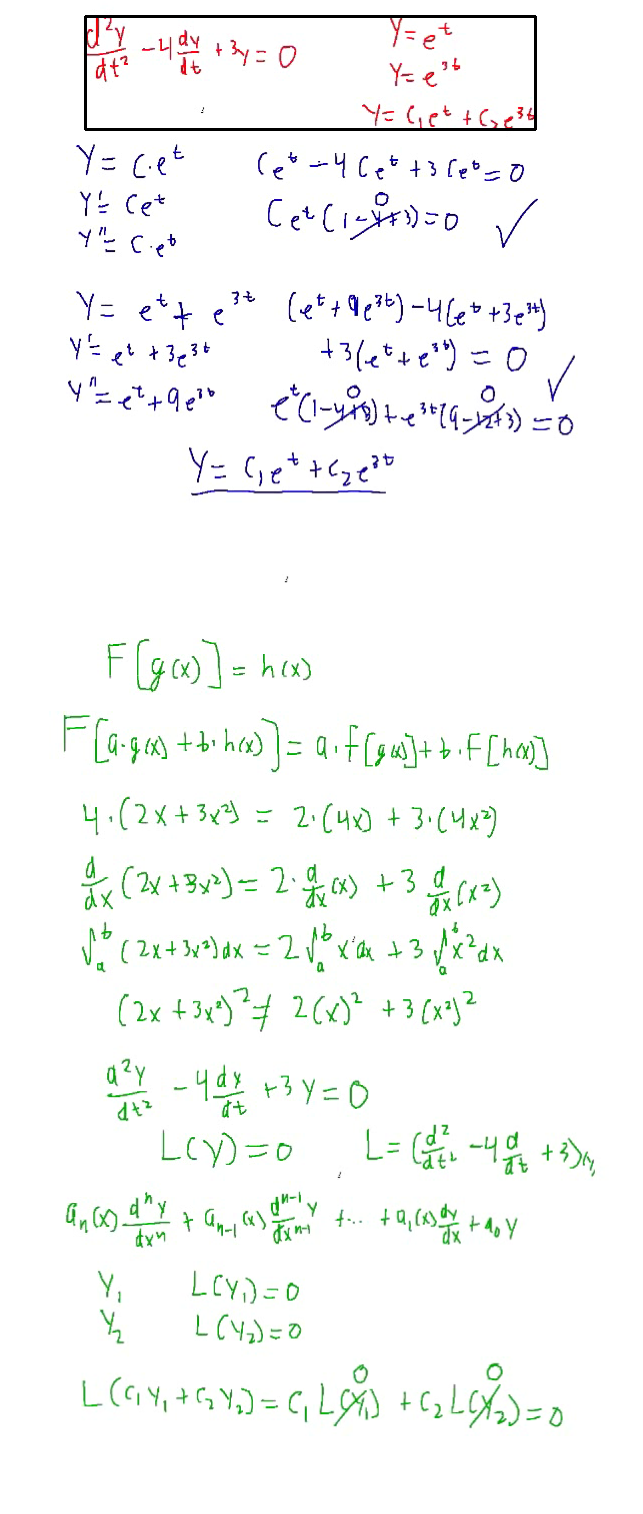 d²y/dt² - 4 dy/dt + 3y = 0
Y = e^t
Y = e^3t
Y = C₁e^t + C₂e^3t
Y = C·e^t
Y' = Ce^t
Y'' = C·e^t
Ce^t - 4Ce^t + 3Ce^t = 0
Ce^t(1-4+3) = 0 ✓
0
Y = e^t + e^3t
Y' = e^t + 3e^3t
Y'' = e^t + 9e^3t
(e^t + 9e^3t) - 4(e^t + 3e^3t)
+3(e^t + e^3t) = 0 ✓
0 0
e^t(1-4+3) + e^3t(9-12+3) = 0
Y = C₁e^t + C₂e^3t
F[g(x)] = h(x)
F[a·g(x) + b·h(x)] = a·f[g(x)] + b·F[h(x)]
4·(2x + 3x²) = 2·(4x) + 3·(4x²)
d/dx (2x + 3x²) = 2·d/dx (x) + 3 d/dx (x²)
∫_a^b (2x + 3x²)dx = 2∫_a^b x dx + 3∫_a^b x²dx
(2x + 3x²)² ≠ 2(x)² + 3(x²)²
d²y/dt² - 4 dy/dt + 3Y = 0
L(Y) = 0 L = (d²/dt² - 4 d/dt + 3)
a_n(x) d^n y/dx^n + a_n-1(x) d^n-1 y/dx^n-1 + ... + a₁(x) dy/dx + a₀Y
Y₁ L(Y₁) = 0
Y₂ L(Y₂) = 0
0 0
L(C₁Y₁ + C₂Y₂) = C₁L(Y₁) + C₂L(Y₂) = 0